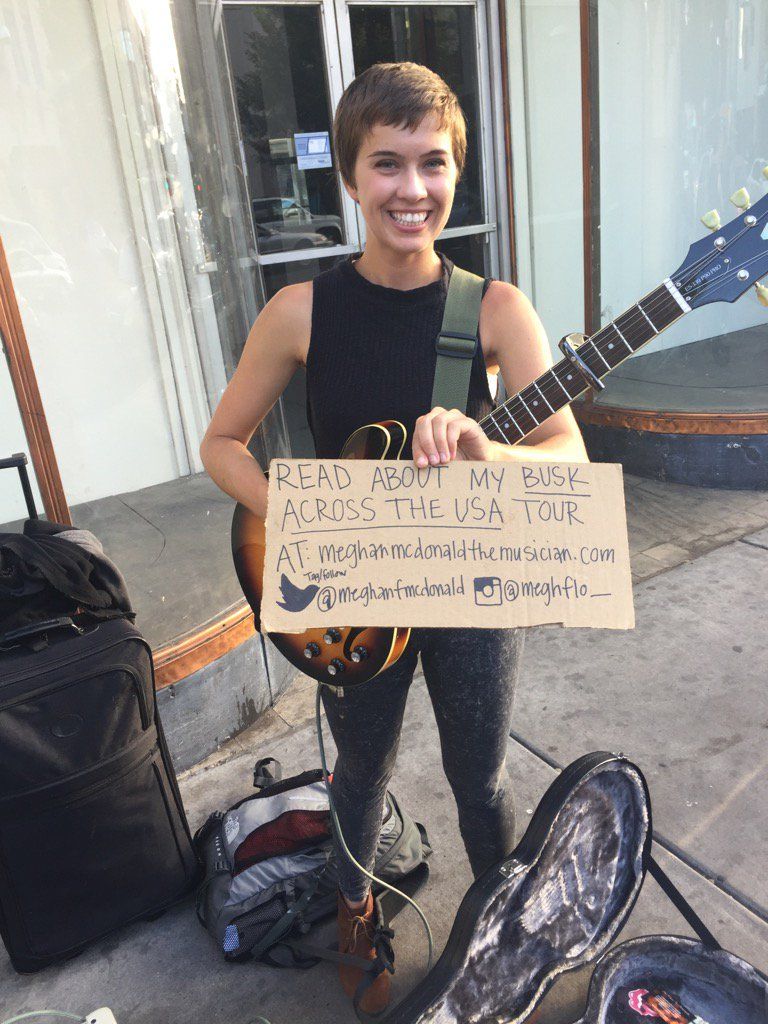 READ ABOUT MY BUSK
ACROSS THE USA TOUR
AT: meghanmcdonaldthemusician.com
Tag/follow
@meghanfmcdonald @meghflo_
ES-339 P90 PRO